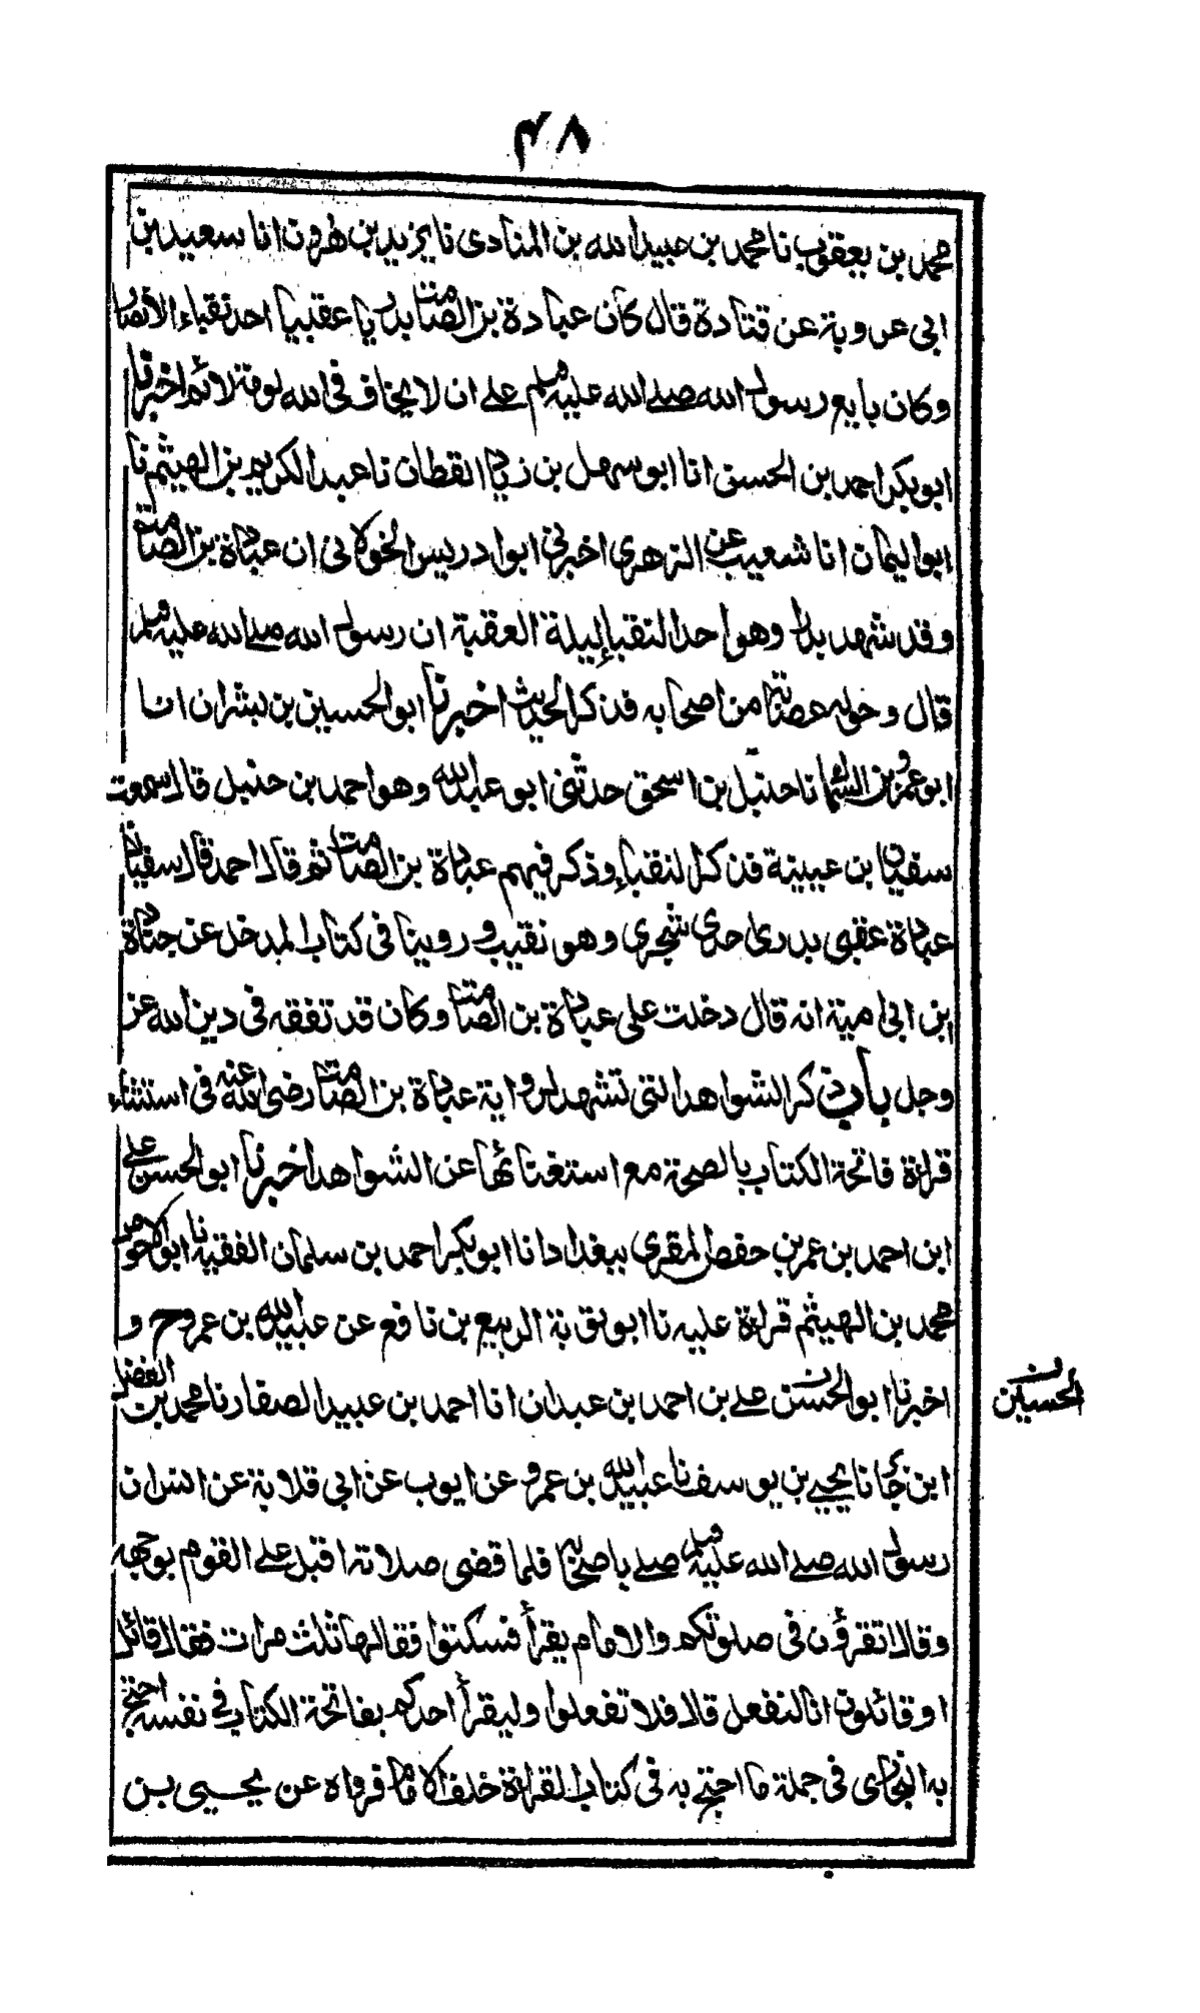 ۴۸
محمد بن يعقوب نا محمد بن عبيد الله بن المنادى نا يزيد بن هرون انا سعيد بن
ابى عروبة عن قتادة قال كان عبادة بن الصامت بدريا عقبيا احد نقباء الانصار
وكان بايع رسول الله صلے الله عليه وسلم علے ان لا يخاف فى الله لومة لائم اخبرنا
ابو بكر احمد بن الحسن انا ابو سهل بن زياد القطان نا عبد الكريم بن الهيثم نا
ابو اليمان انا شعيب عن الزهرى اخبرنى ابو ادريس الخولانى ان عبادة بن الصامت
وقد شهد بدرا وهو احد النقباء ليلة العقبة ان رسول الله صلے الله عليه وسلم
قال وحوله عصابة من اصحابه فذكر الحديث اخبرنا ابو الحسين بن بشران انا
ابو عمرو بن السماك نا حنبل بن اسحق حدثنى ابو عبد الله وهو احمد بن حنبل قال سمعت
سفيان بن عيينة فذكر النقباء وذكر فيهم عبادة بن الصامت ثم قال احمد قال سفيان
عبادة عقبى بدرى احدى شجرى وهو نقيب وروينا فى كتاب المدخل عن جنادة
ابن ابى امية انه قال دخلت على عبادة بن الصامت وكان قد تفقه فى دين الله عز
وجل باب ذكر الشواهد التى تشهد لرواية عبادة بن الصامت رضى الله عنه فى استثناء
قراءة فاتحة الكتاب بالصحة مع استغنائها عن الشواهد اخبرنا ابو الحسن على
ابن احمد بن عمر بن حفص المقرى ببغداد انا ابو بكر احمد بن سلمان الفقيه نا ابو الاحوص
محمد بن الهيثم قراءة عليه نا ابو توبة الربيع بن نافع عن عبيد الله بن عمرو ح و
اخبرنا ابو الحسن علے بن احمد بن عبدان انا احمد بن عبيد الصفار نا محمد بن الفضل
الحسين ن
ابن جابر نا يحيے بن يوسف نا عبيد الله بن عمرو عن ايوب عن ابى قلابة عن انس ان
رسول الله صلے الله عليه وسلم صلے باصحابه فلما قضى صلاته اقبل علے القوم بوجهه
وقال اتقرؤن فى صلوتكم والامام يقرأ فسكتوا فقالها ثلث مرات فقال قائل
او قائلون انا لنفعل قال فلا تفعلوا وليقرأ احدكم بفاتحة الكتاب فے نفسه احتج
به البخارى فى جملة ما احتج به فى كتاب القراءة خلف الامام فرواه عن يحيى بن